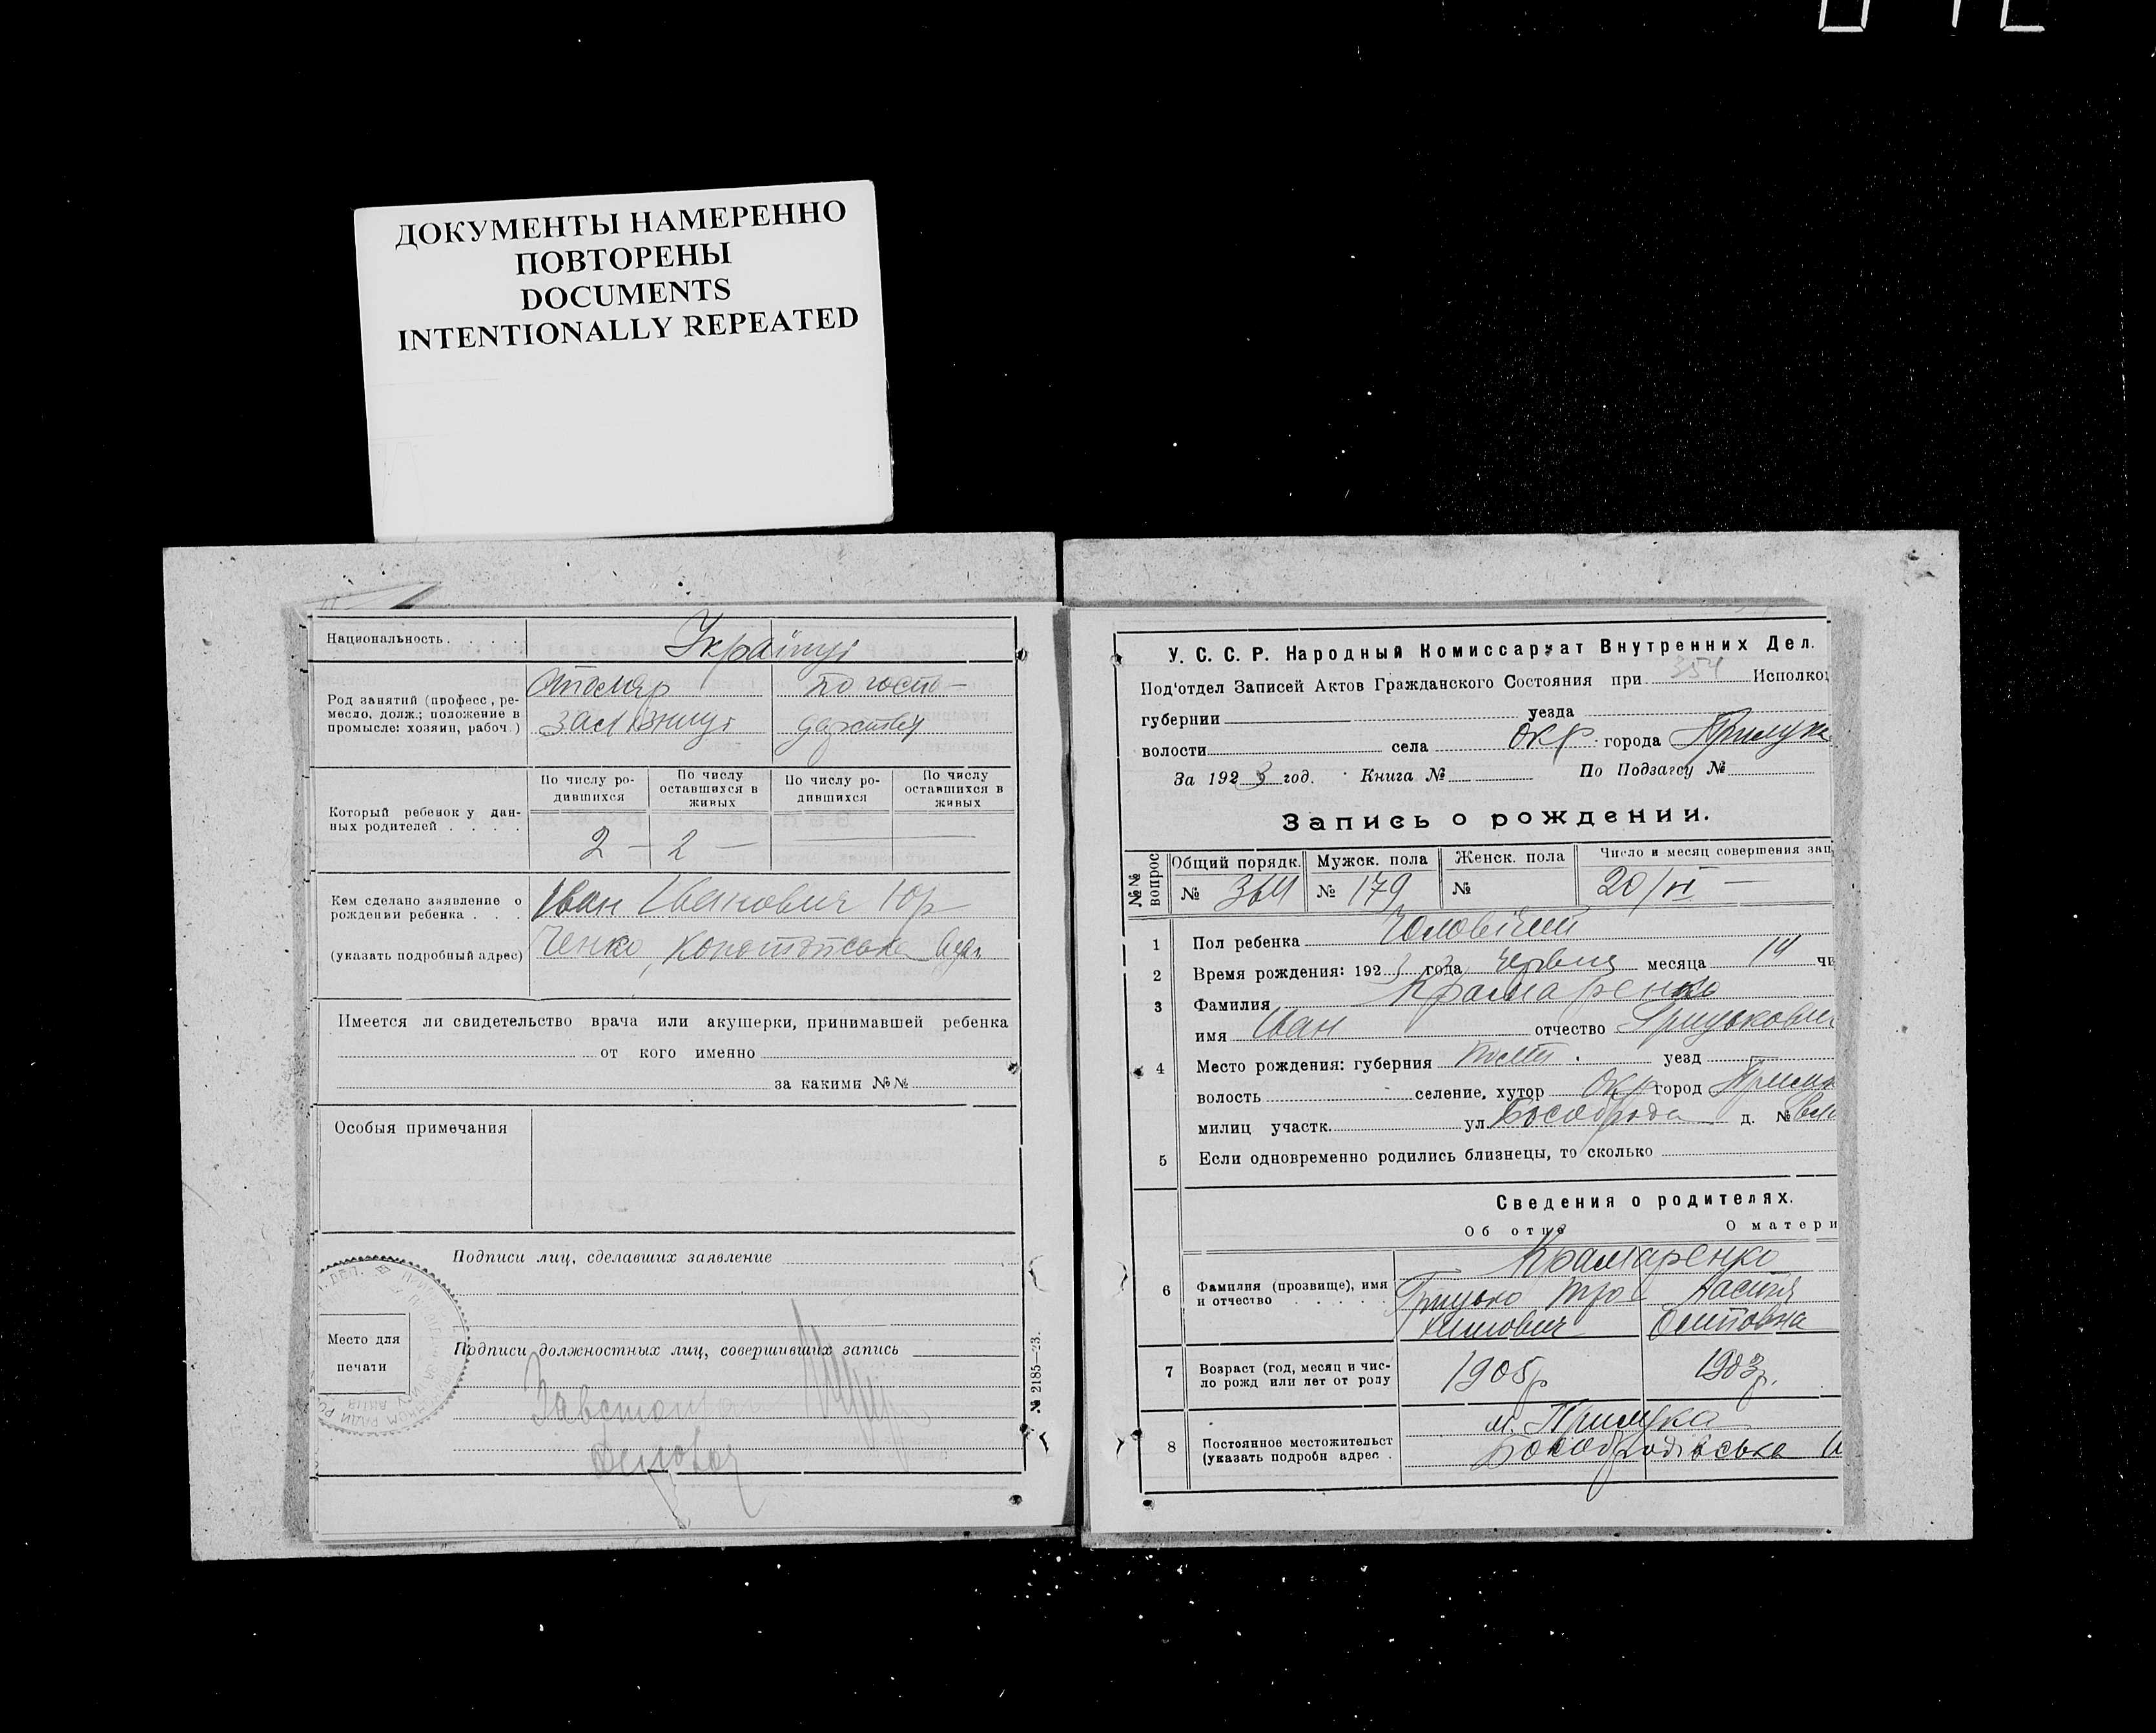 ДОКУМЕНТЫ НАМЕРЕННО
ПОВТОРЕНЫ
DOCUMENTS
INTENTIONALLY REPEATED
Национальность . . . . Українці
Род занятий (професс, ре-
месло, долж.; положение в
промысле: хозяин, рабоч.)
Столяр
залізниці
по госпо-
дарству
Который ребенок у дан-
ных родителей . . . .
По числу ро-
дившихся
По числу
оставшихся в
живых
По числу ро-
дившихся
По числу
оставшихся в
живых
2 — 2 —
Кем сделано заявление о
рождении ребенка . . .
(указать подробный адрес)
Іван Іванович Юр
ченко, Конотопська вул.
Имеется ли свидетельство врача или акушерки, принимавшей ребенка
от кого именно
за какими №№
Особыя примечания
Подписи лиц, сделавших заявление
Место для
печати
Подписи должностных лиц, совершивших запись
№ 2185—23.
У. С. С. Р. Народный Комиссариат Внутренних Дел.
Под'отдел Записей Актов Гражданского Состояния при 354 Исполко
губернии уезда
волости села окр. города Прилук
За 1923 год. Книга № По Подзагсу №
Запись о рождении.
№№ вопрос
Общий порядк. Мужск. пола Женск. пола Число и месяц совершения зап
№ 364 № 179 № 20/VI —
1 Пол ребенка Чоловічий
2 Время рождения: 1923 года червня месяца 14 чи
3 Фамилия Крамаренко
имя Іван отчество Грицькович
4 Место рождения: губерния Полт. уезд
волость селение, хутор окр город Прилук
милиц участк. ул Бособрода д. №
5 Если одновременно родились близнецы, то сколько
Сведения о родителях.
Об отце О матери
6 Фамилия (прозвище), имя
и отчество . . . . .
Крамаренко
Грицько Тро
химович
Настя
Осиповна
7 Возраст (год, месяц и чис-
ло рожд или лет от роду
1905р 1903р.
8 Постоянное местожительст
(указать подробн адрес .
м. Прилука
Бособродівська